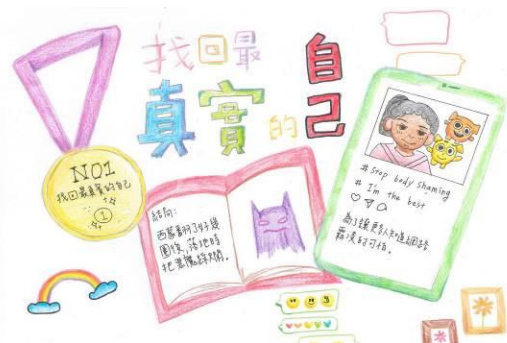 找回最
真實的
自己
NO1
找回最真實的自己
1
結局:
西蒙翻了好幾
圈後,落地時
把惡魔踩爛。
#stop body shaming
# I'm the best
為了讓更多人知道網路
霸凌的可怕。